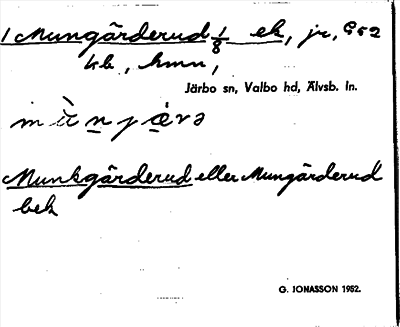 1 Mungärderud 1/8 ek, jr, G52
kb, hmn,
Järbo sn, Valbo hd, Älvsb. ln.
Munkgärderud eller Mungärderud
bek
G. JONASSON 1952.